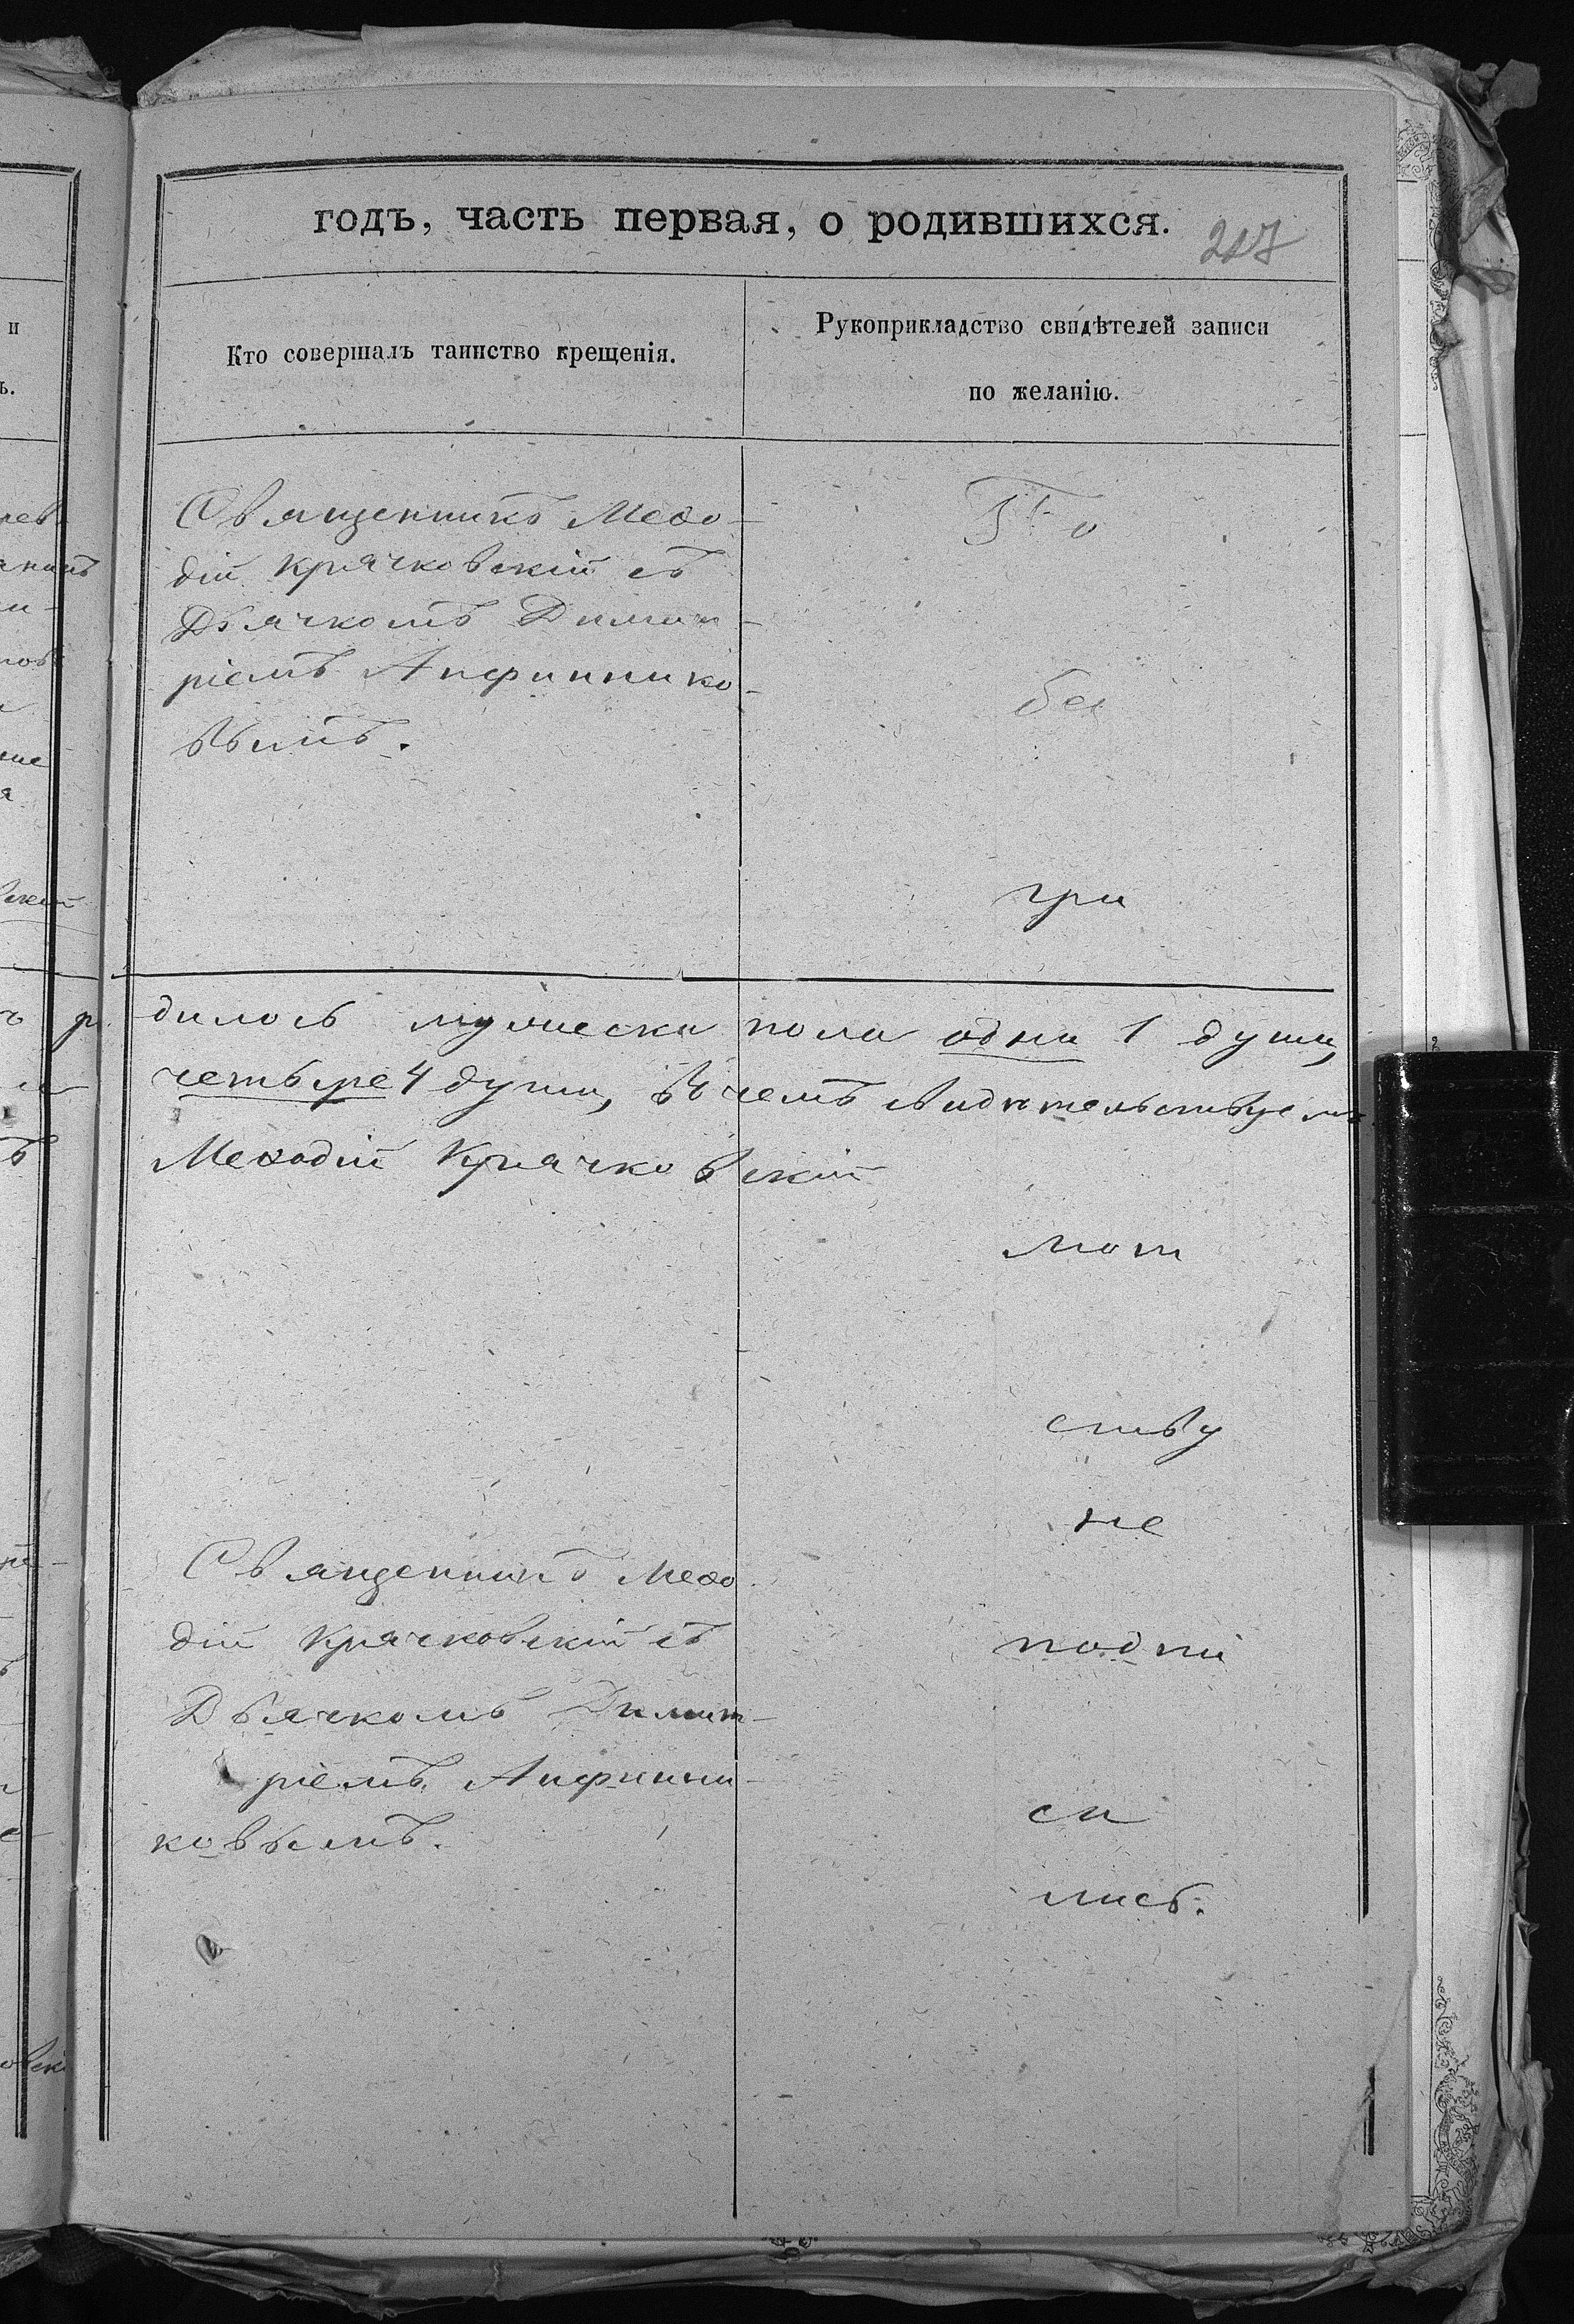 годъ, часть первая, о родившихся.
217
Кто совершалъ таинство крещенія.
Рукоприкладство свидѣтелей записи
по желанію.
Священникъ Меѳо-
дій Крячковскій съ
Дьячкомъ Димит-
ріемъ Анфиннико-
вымъ.
По
без
гра
дилось мужеска пола одна 1 душа,
четыре 4 души, въ чемъ свидѣтельствуемъ
Меѳодій Крячковскій
мот
ству
не
Священникъ Меѳо
дій Крячковскій съ
Дьячкомъ Димит-
ріемъ Анфинни-
ковымъ.
подпи
са
лись.